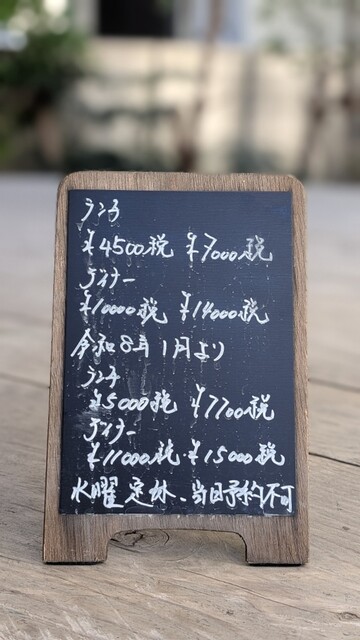 ランチ
¥4500税 ¥7000税
ディナー
¥10000税 ¥14000税
令和8年1月より
ランチ
¥5000税 ¥7700税
ディナー
¥11000税 ¥15000税
水曜定休、当日予約不可